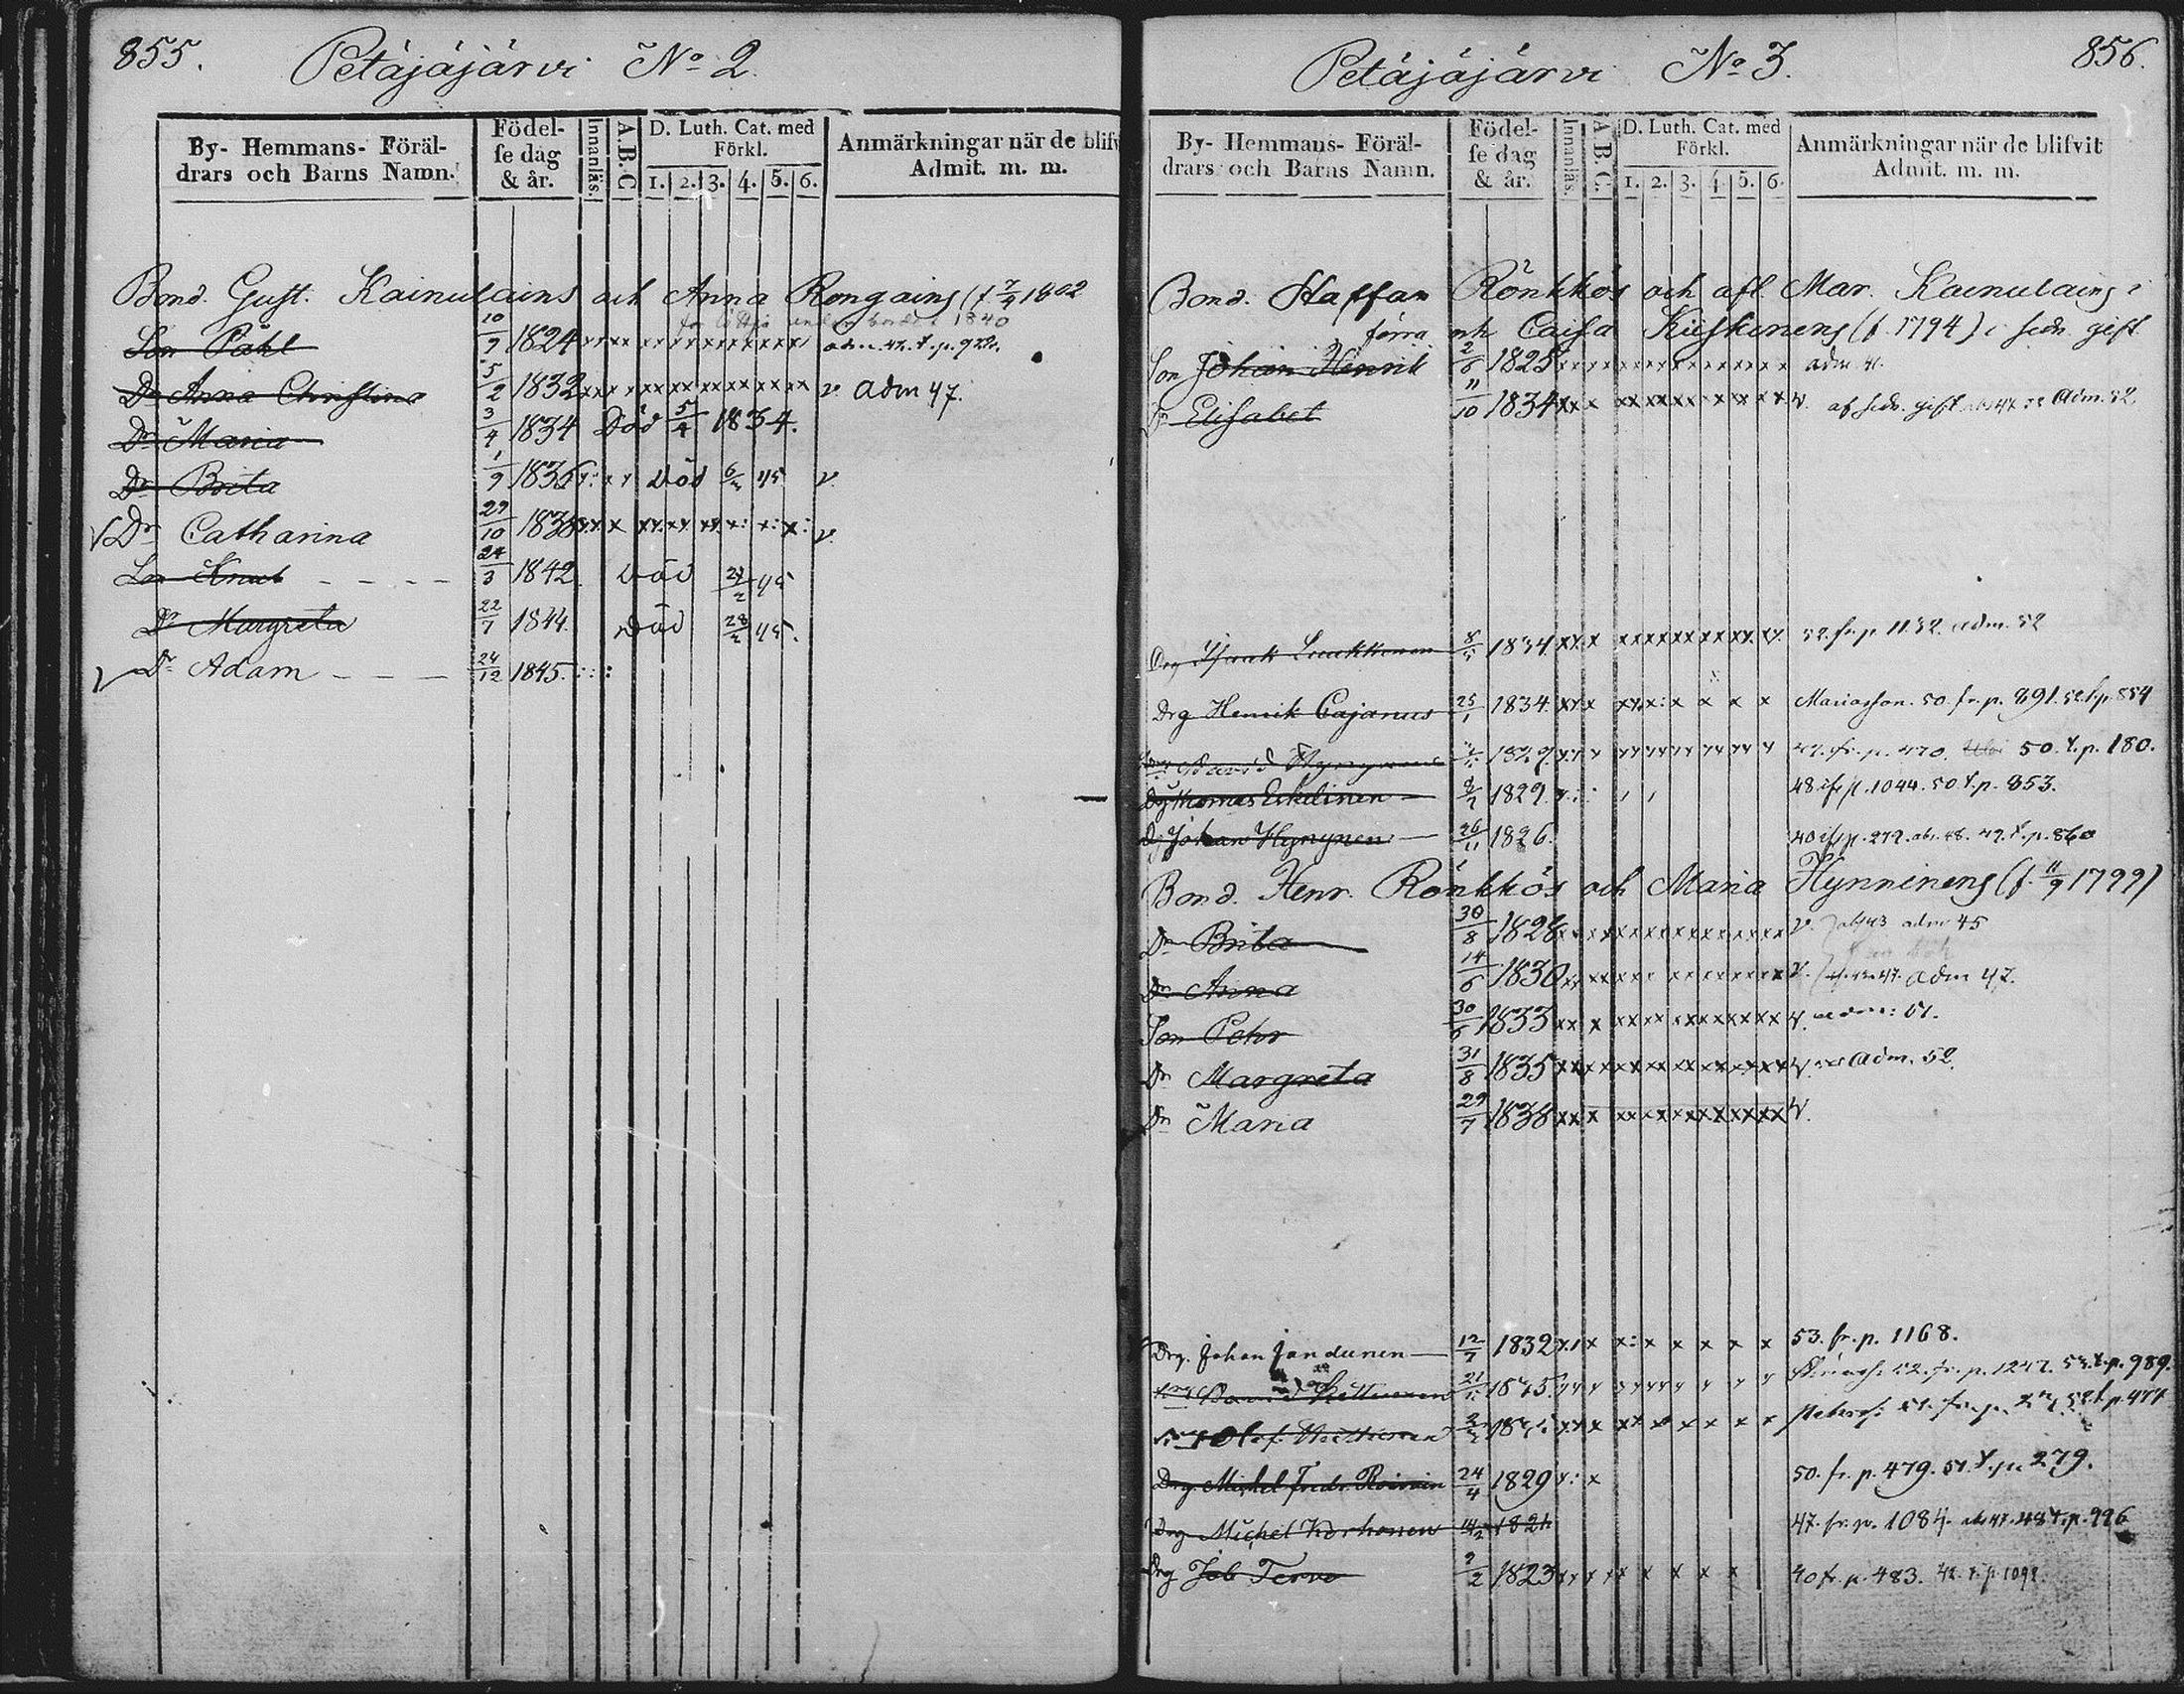 855.
Petäjäjärvi No 2.
By- Hemmans- Föräl-
drars och Barns Namn.
Födel-
se dag
& år.
Innanläs.
A.B.C
D. Luth. Cat. med
Förkl.
1. 2. 3. 4. 5. 6.
Anmärkningar när de blifv
Admit. m. m.
Bond. Gust. Kainulains och Anna Rongains (f. 7/9 1802
1840
Son Påhl 10/9 1824 xx xx xx xx xx xx xx adm. 42. t.p. 922.
Dr Anna Christina 5/2 1832 xxx x xx xx xx xx xx xx v adm 47.
Dr Maria 3/4 1834 Död 5/4 1834.
Dr Brita 1/9 1836 Död 6/2 45 v.
Dr Catharina 29/10 1838 v.
Son Knut 24/3 1842. Död 24/2 45
Dr Margreta 22/7 1844. Död 28/2 45.
Dr Adam 24/12 1845.
856.
Petäjäjärvi No 3.
By- Hemmans- Föräl-
drars och Barns Namn.
Födel-
se dag
& år.
Innanläs.
A.B.C.
D. Luth. Cat. med
Förkl.
1. 2. 3. 4. 5. 6.
Anmärkningar när de blifvit
Admit. m. m.
Bond. Staffan Rönkkös och afl. Mar. Kainulains i
förra och Caisa Kiiskinens (f. 1794) i sedn. gift
Son Johan Henrik 2/6 1825 adm. 41.
Dr Elisabet 11/10 1834 v. af sedn. gift Adm. 52.
Drg Isaak Luukkonen 8/5 1834 52. fr. p. 1132. adm. 52
Drg Henrik Cajanus 25/1 1834. Mariasson. 50. fr. p. 891. 52 t.p. 854
David Hynynen 1829. 47. fr. p. 470. 50. t. p. 180.
Drg Thomas Eskelinen 9/7 1829. 48 ifr p. 1044. 50 t. p. 853.
Drg Johan Hynynen 26/11 1826. 40 ifr p. 272. abs. 48. 49. t. p. 860
Bond. Henr. Rönkkös och Maria Hynninens (f. 11/9 1799)
Dr Brita 30/8 1828 v. abs 43 adm 45
Dr Anna 14/6 1830 v. adm 47.
Son Petr 30/6 1833 v. adm: 51.
Dr Margreta 31/8 1835 v. Adm. 52.
Dr Maria 29/7 1838 v.
Drg. Johan Jandunen 12/7 1832 53. fr. p. 1168.
David 21 52. fr. p. 1247. 53. t. p. 989.
Olof 52 t. p. 477
Drg Michel Fredr. Roinin 24/4 1829 50. fr. p. 479. 51. t. p. 279.
Drg Michel Korhonen 14/2 1821 47. fr. p. 1084. abs 47. 48 t. p. 996
Drg Job Tervo 2/2 1823 40 fr. p. 483. 42. t. p. 1092.